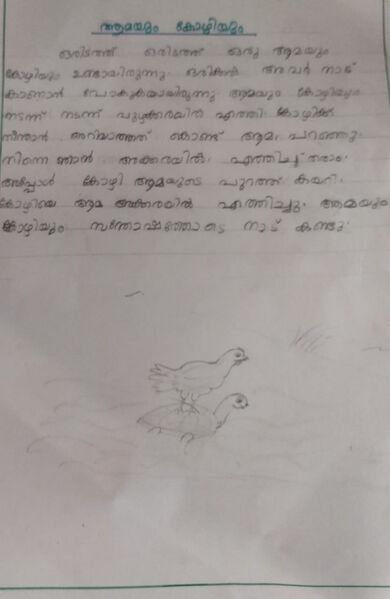 ആമയും കോഴിയും
ഒരിടത്ത് ഒരിടത്ത് ഒരു ആമയും
കോഴിയും ഉണ്ടായിരുന്നു. ഒരിക്കൽ അവർ നാട്
കാണാൻ പോകുകയായിരുന്നു ആമയും കോഴിയും
നടന്ന് നടന്ന് പുഴക്കരയിൽ എത്തി കോഴിക്ക്
നീന്താൻ അറിയാത്തത് കൊണ്ട് ആമ പറഞ്ഞു.
നിന്നെ ഞാൻ അക്കരയിൽ എത്തിച്ച് തരാം.
അപ്പോൾ കോഴി ആമയുടെ പുറത്ത് കയറി.
കോഴിയെ ആമ അക്കരയിൽ എത്തിച്ചു. ആമയും
കോഴിയും സന്തോഷത്തോടെ നാട് കണ്ടു.